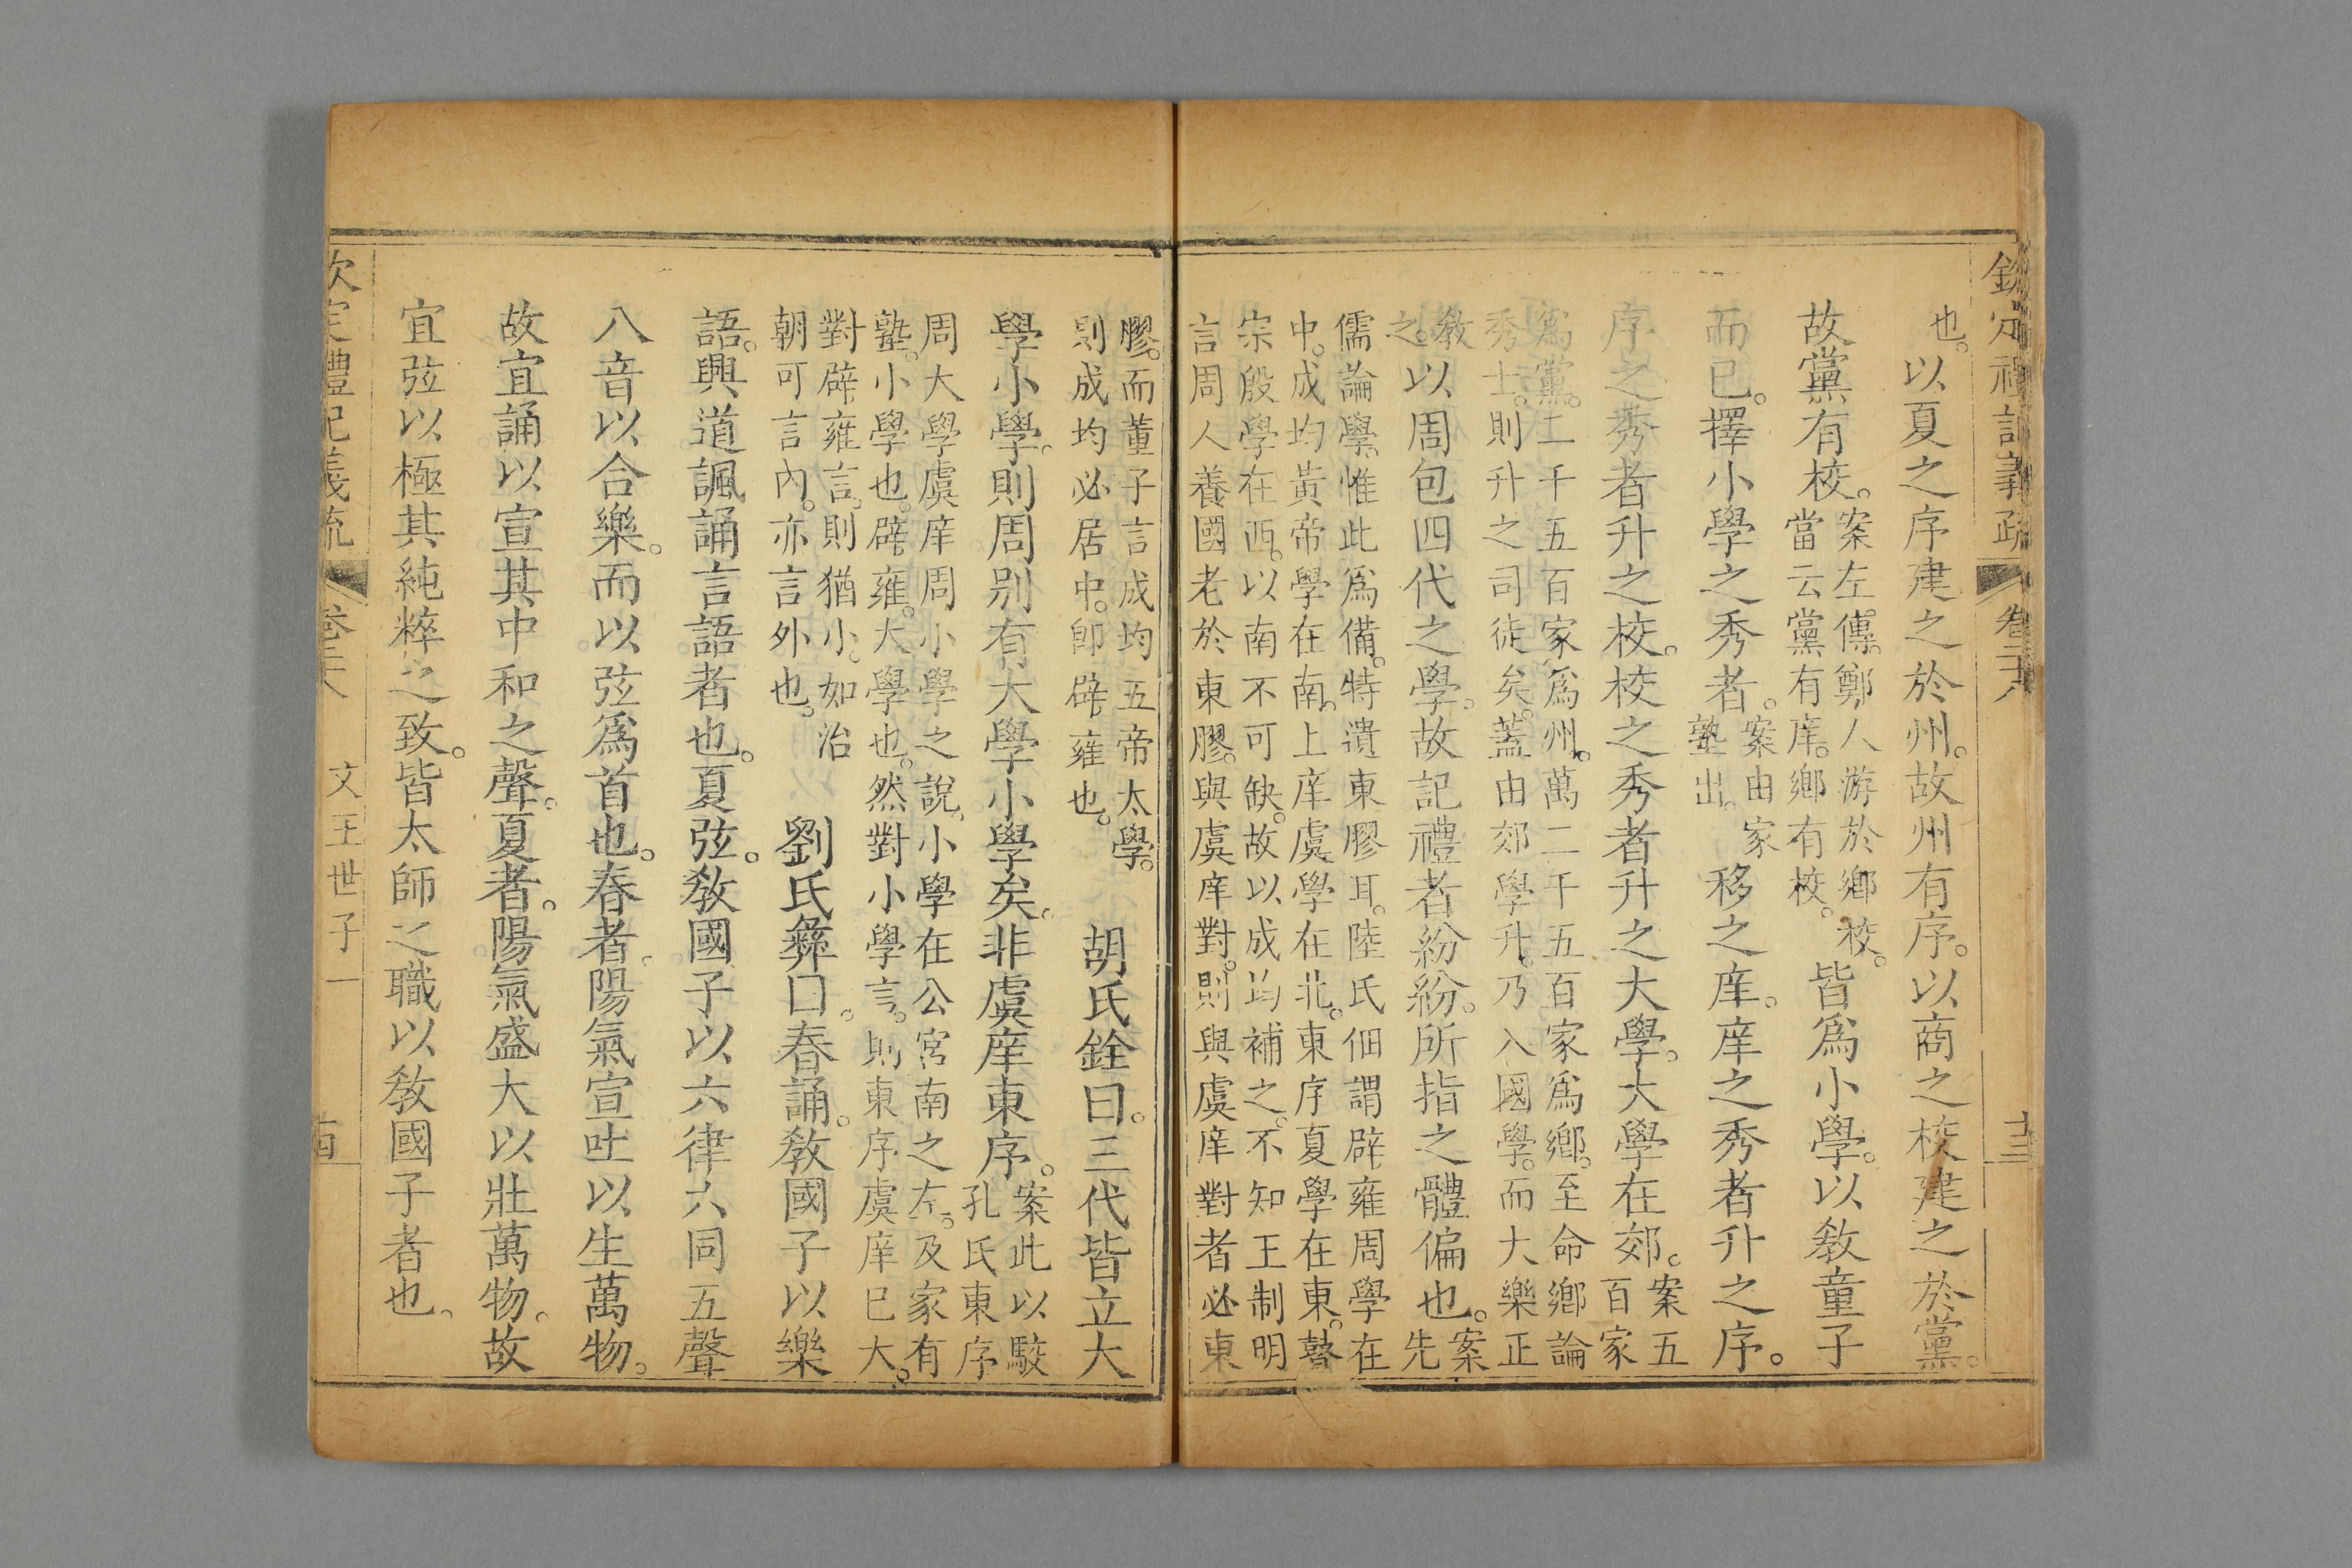 欽定禮記義疏 卷二十八 十三
也。以夏之序建之於州。故州有序。以商之校建之於黨。
故黨有校。案左傳。鄭人游於鄉校。當云黨有庠。鄉有校。皆爲小學。以敎童子
而已。擇小學之秀者。案由家塾出。移之庠。庠之秀者升之序。
序之秀者升之校。校之秀者升之大學。大學在郊。案五百家
爲黨。二千五百家爲州。萬二千五百家爲鄉。至命鄉論
秀士。則升之司徒矣。蓋由郊學升。乃入國學。而大樂正
敎之。以周包四代之學。故記禮者紛紛。所指之體偏也。案先
儒論學。惟此爲備。特遺東膠耳。陸氏佃謂辟雍周學在
中。成均黃帝學在南。上庠虞學在北。東序夏學在東。瞽
宗殷學在西。以南不可缺。故以成均補之。不知王制明
言周人養國老於東膠。與虞庠對。則與虞庠對者必東
膠。而董子言成均五帝太學。
則成均必居中。卽辟雍也。胡氏銓曰。三代皆立大
學小學。則周別有大學小學矣。非虞庠東序。案此以駮孔氏東序
周大學虞庠周小學之說。小學在公宮南之左。及家有
塾。小學也。辟雍。大學也。然對小學言。則東序虞庠已大。
對辟雍言。則猶小。如治
朝可言內。亦言外也。劉氏彝曰。春誦。敎國子以樂
語。興道諷誦言語者也。夏弦。敎國子以六律六同五聲
八音以合樂。而以弦爲首也。春者。陽氣宣吐以生萬物。
故宜誦以宣其中和之聲。夏者。陽氣盛大以壯萬物。故
宜弦以極其純粹之致。皆太師之職以敎國子者也。
欽定禮記義疏 卷二十八 文王世子一 十四